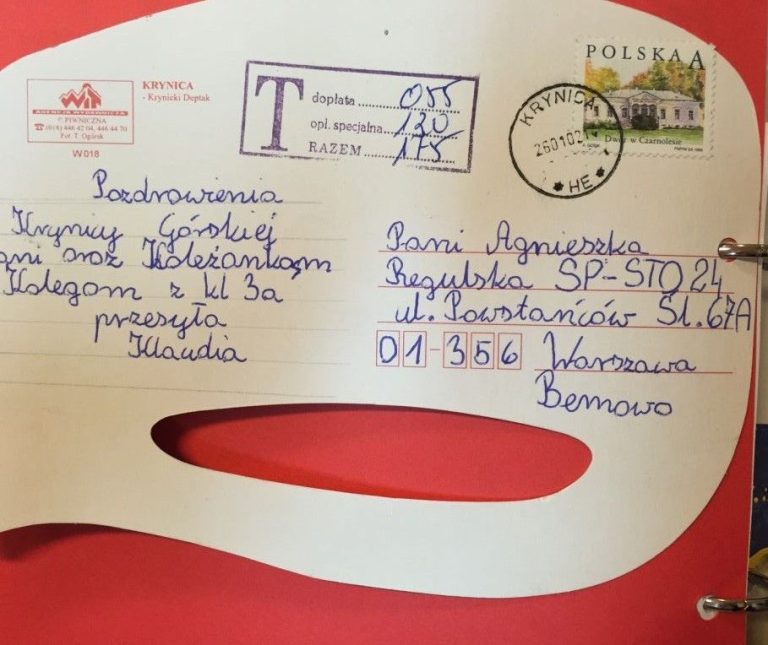 WIT
AGENCJA WYDAWNICZA
© PIWNICZNA
☎ (018) 446 42 04, 446 44 70
Fot. T. Ogórek
W 018
KRYNICA
- Krynicki Deptak
T
dopłata 055
opł. specjalna 120
RAZEM 175
POLSKA A
Dwór w Czarnolesie
KRYNICA
260102
* HE *
Pozdrowienia
Krynicy Górskiej
ani oraz Koleżankom
Kolegom z kl 3a
przesyła
Klaudia
Pani Agnieszka
Regulska SP-STO 24
ul. Powstańców Śl. 67A
01-356 Warszawa
Bemowo